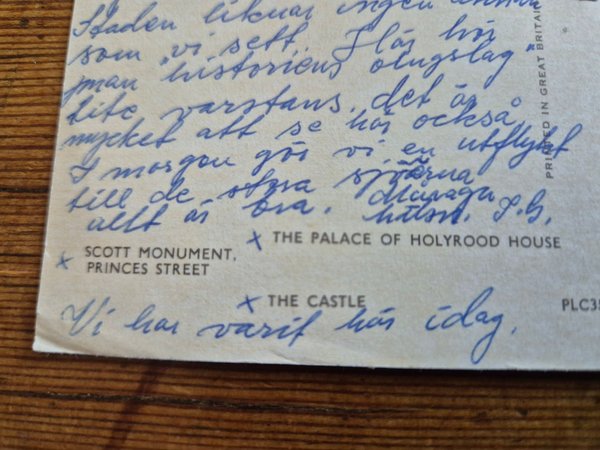 Staden liknar ingen annan
som vi sett. Här hör
man "historiens vingslag"
lite varstans, det är
mycket att se här också,
I morgon gör vi en utflykt
till de stora sjöarna
allt är bra.
x THE PALACE OF HOLYROOD HOUSE
x SCOTT MONUMENT,
PRINCES STREET
x THE CASTLE
PLC35
Vi har varit här idag.
PRINTED IN GREAT BRITAI